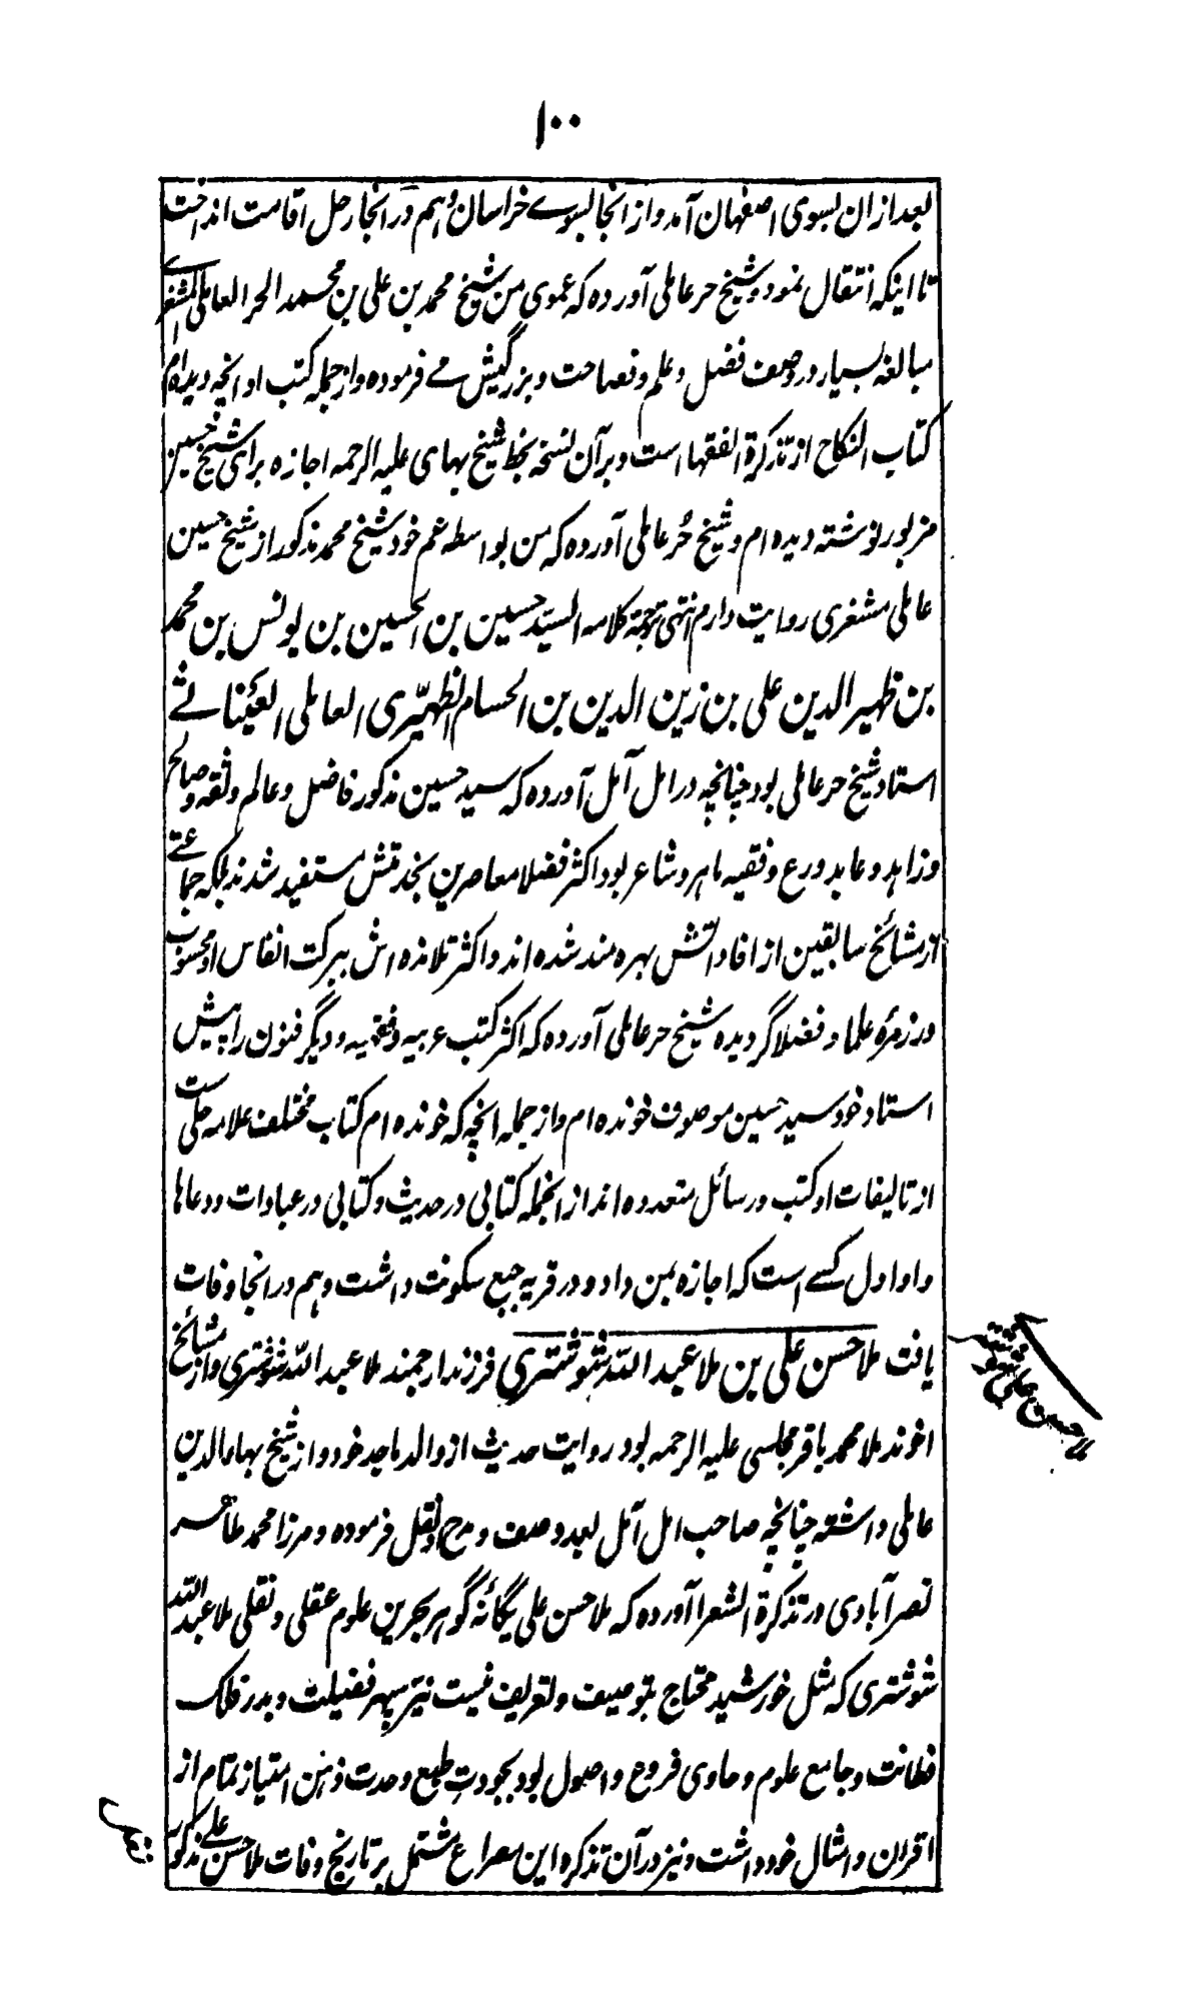 ۱۰۰
بعد ازان بسوی اصفهان آمد و از انجا بسوے خراسان و هم در انجا رحل اقامت انداخت
تا اینکه انتقال نمود و شیخ حر عاملی آورده که عموی من شیخ محمد بن علی بن محمد الحر العاملی المشغرے
مبالغه بسیار در وصف فضل و علم و فصاحت و بزرگیش مے فرموده و از جمله کتب او انچه دیده‌ام
کتاب النکاح از تذکرة الفقها است و بر آن نسخه بخط شیخ بهای علیه الرحمه اجازه برای شیخ حسین
مزبور نوشته دیده ام و شیخ حُر عاملی آورده که من بواسطه عم خود شیخ محمد مذکور از شیخ حسین
عاملی مشغری روایت دارم انتهی ترجمة کلامه السیّد حسین بن الحسین بن یونس بن محمد
بن ظهیر الدین علی بن زین الدین بن الحسام الظهیّری العاملی العیناثے
استاد شیخ حر عاملی بود چنانچه در امل آمل آورده که سید حسین مذکور فاضل و عالم و ثقه و صالح
و زاهد و عابد و ورع و فقیه ماهر و شاعر بود اکثر فضلا معاصرین بخدمتش مستفید شدند بلکه جماعتے
از مشائخ سابقین از افاداتش بهره مند شده اند و اکثر تلامذه اش ببرکت انفاس او محسوب
در زمرهٔ علما و فضلا گردیده شیخ حر عاملی آورده که اکثر کتب عربیه و فقهیه و دیگر فنون را پیش
استاد خود سید حسین موصوف خونده ام و از جمله انچه که خونده ام کتاب مختلف علامه حلی ست
از تالیفات او کتب و رسائل متعدده اند از انجمله کتابی در حدیث و کتابی در عبادات و دعاها
و او اول کسے است که اجازه بمن داد و در قریه جبع سکونت داشت و هم در انجا وفات
یافت ملا حسن علی بن ملا عبد اللّه شوشتری فرزند ارجمند ملا عبد اللّه شوشتری و از مشائخ
ملا حسن علی شوشتری
اخوند ملا محمد باقر مجلسی علیه الرحمه بود روایت حدیث از والد ماجد خود و از شیخ بهاء الدین
عاملی داشته چنانچه صاحب امل آمل بعد وصف و مدح او نقل فرموده و مرزا محمد طاهر
نصرآبادی در تذکرة الشعرا آورده که ملا حسن علی یگانهٔ گوهر بحرین علوم عقلی و نقلی ملا عبد اللّه
شوشتری که مثل خورشید محتاج بتوصیف و تعریف نیست نیّر سپهر فضیلت و بدر فلک
فطانت و جامع علوم و حاوی فروع و اصول بود بجودتِ طبع و حدت ذهن امتیاز تمام از
اقران و امثال خود داشت و نیز در آن تذکره این مصراع مشتمل بر تاریخ وفات ملا حسن علے مذکور